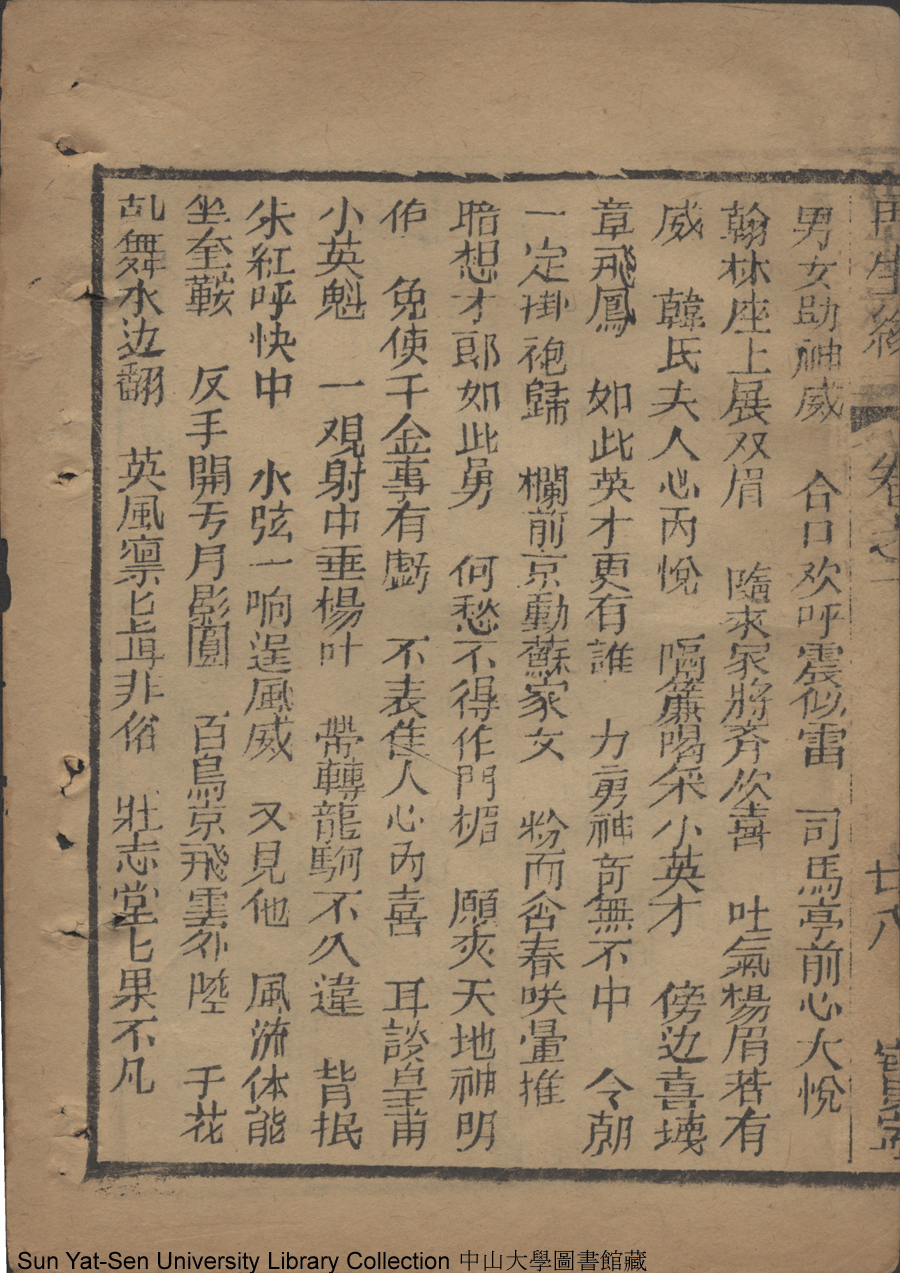 再生緣 卷之一 廿八
男女助神威 合口欢呼震似雷 司馬亭前心大悅
翰林座上展双眉 隨來家將齐欢喜 吐氣楊眉若有
威 韓氏夫人心内悅 嗝簾喝采小英才 傍边喜壊
章飛鳳 如此英才更有誰 力勇神奇無不中 今朝
一定掛袍歸 欄前京動蘇家女 粉面含春咲暈推
暗想才郎如此勇 何愁不得作門楣 願求天地神明
佑 免使千金事有戯 不表隹人心内喜 耳談皇甫
小英魁 一观射中垂楊叶 帶轉龍駒不久違 背抿
朱紅呼快中 水弦一响逞風威 又見他 風流体能
坐金鞍 反手開弓月影圓 百鳥京飛雲外陞 于花
乱舞水边翻 英風凛匕真非俗 壯志堂匕果不凡
Sun Yat-Sen University Library Collection 中山大學圖書館藏